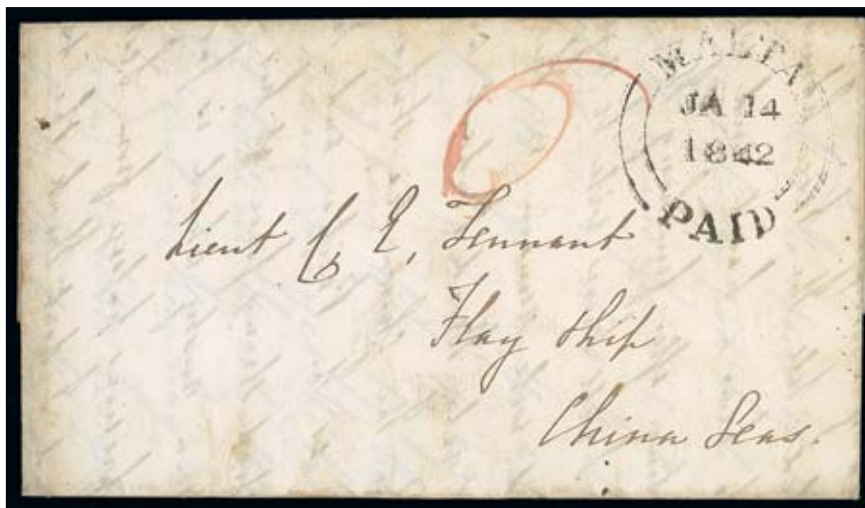 MALTA
JA 14
1842
PAID
Lieut C, E, Tennant
Flag Ship
China Seas.